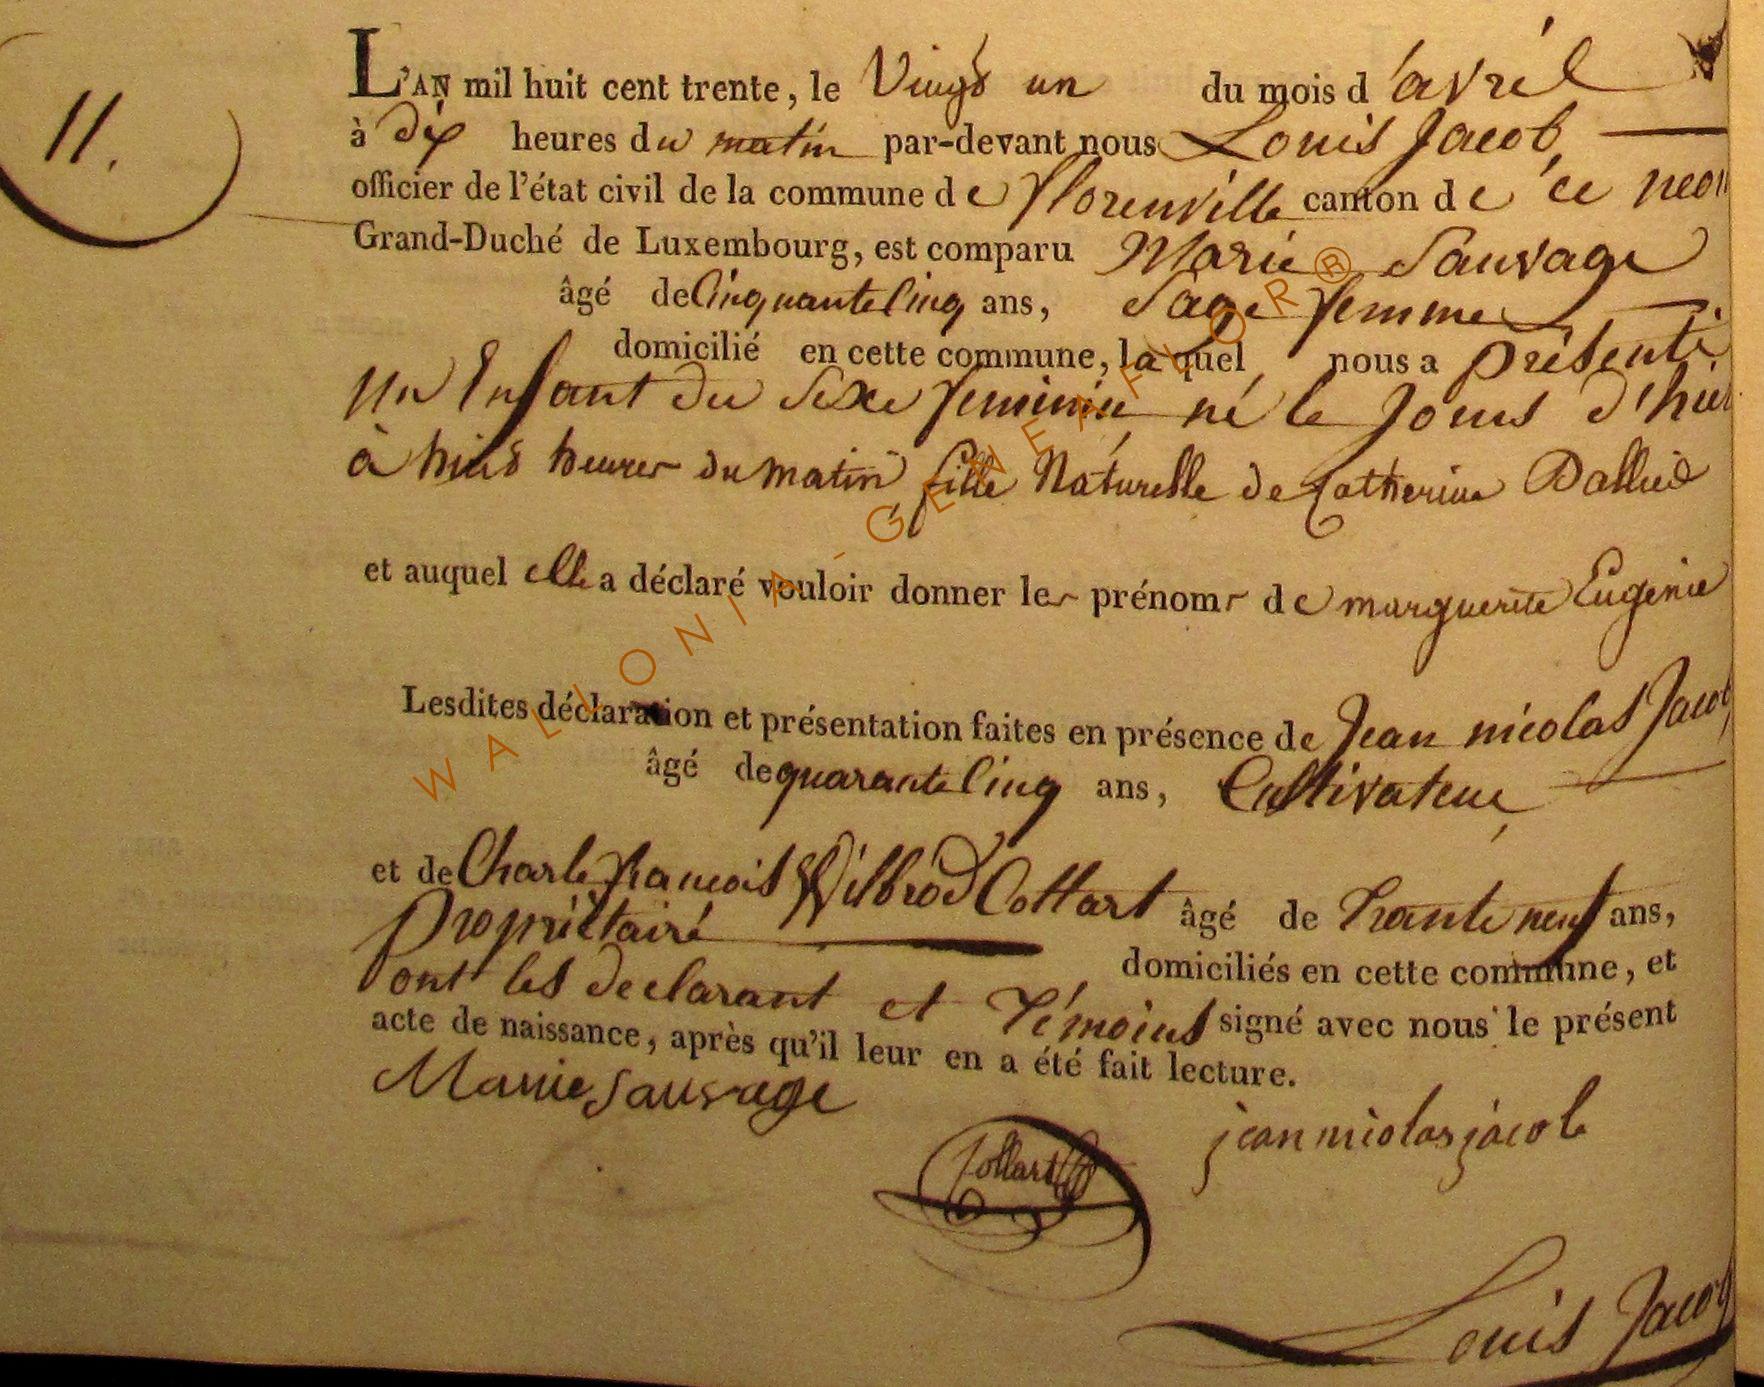 11.
L'AN mil huit cent trente, le Vingt un du mois d'avril
à dix heures du matin par-devant nous Louis Jacob
officier de l'état civil de la commune de florenville canton de ce nom
Grand-Duché de Luxembourg, est comparu Marie Sauvage
âgé de Cinquante Cinq ans, Sage femme
domicilié en cette commune, laquel nous a présenté
un Enfant du sexe feminin né le Jour d'hier
à huit heures du matin fille Naturelle de Catherine
et auquel elle a déclaré vouloir donner les prénoms de marguerite Eugenie
Lesdites déclaration et présentation faites en présence de Jean nicolas Jacob
âgé de quarante Cinq ans, Cultivateur
et de Charle françois Wilbrod Collart âgé de Trante neuf ans,
Propriétaire domiciliés en cette commune, et
ont les declarant et Témoins signé avec nous le présent
acte de naissance, après qu'il leur en a été fait lecture.
Marie Sauvage
jean nicolas jacob
Collart
Louis Jacob
WALLONIA-GENEAFLOR®